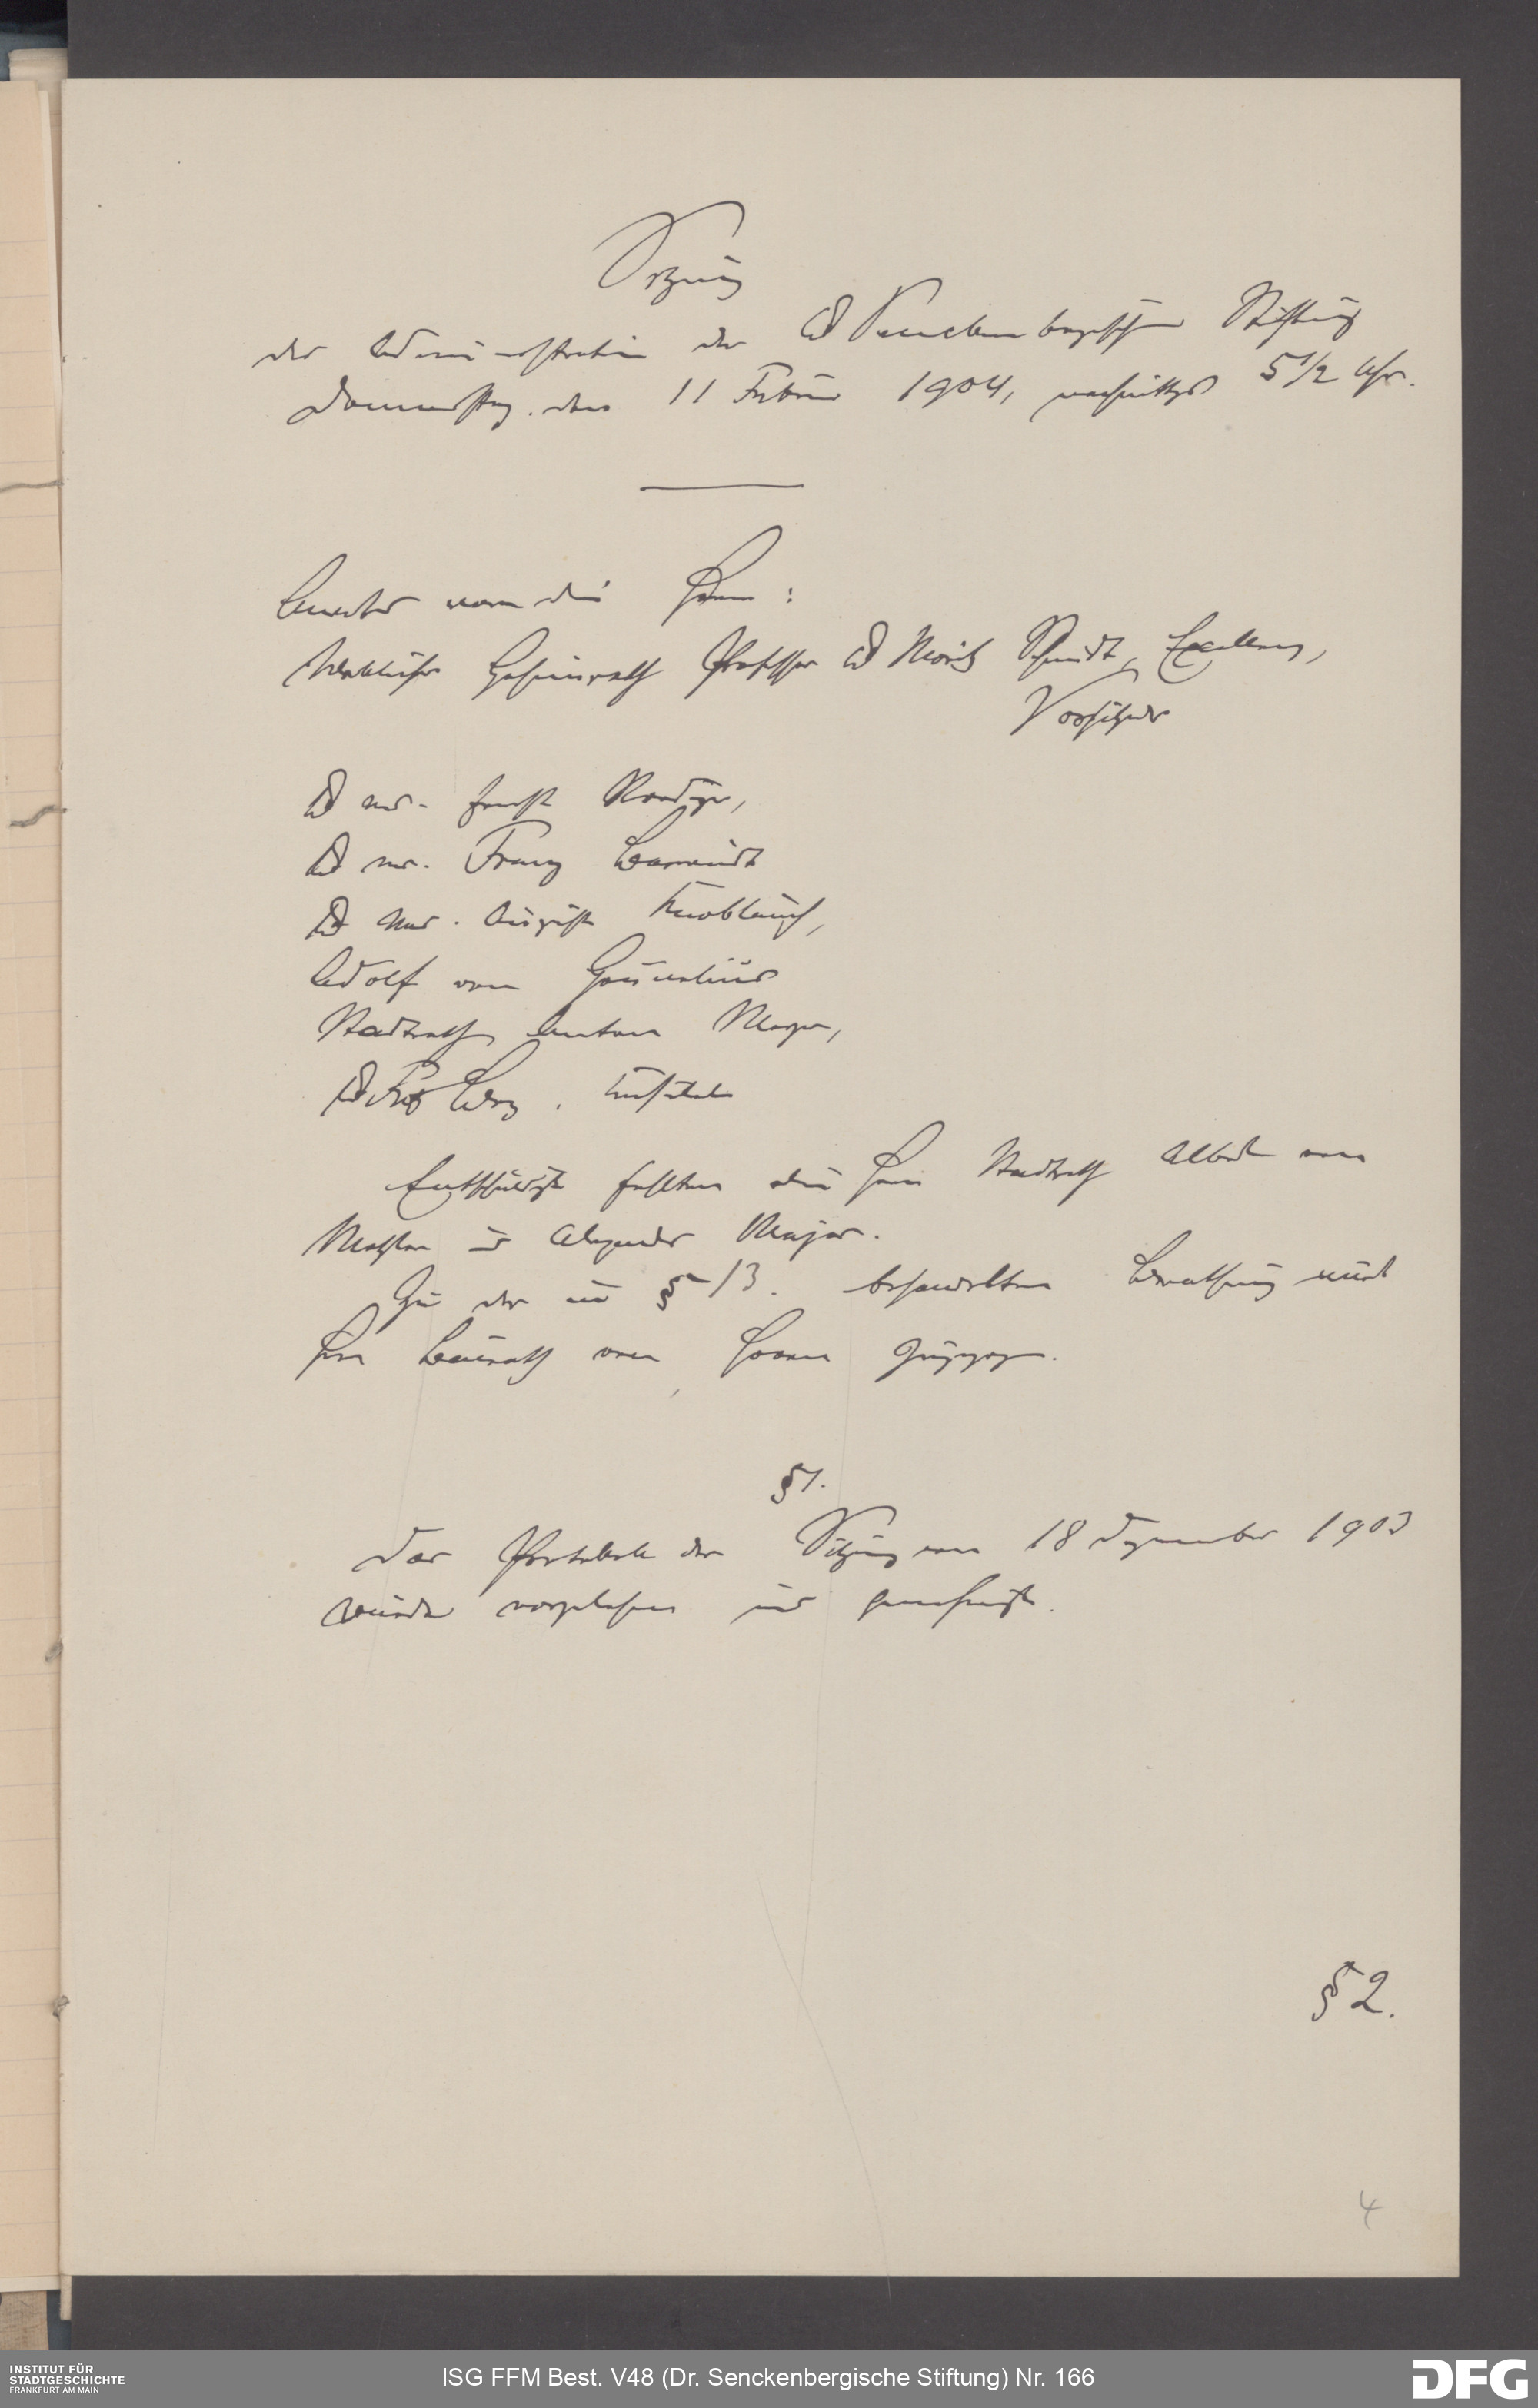 Sitzung
der Administration der Dr Senckenbergischen Stiftung
Donnerstag den 11 Februar 1904, nachmittgs 5 1/2 Uhr.
Anwesend waren die Herren:
Wirklicher Geheimrath Professor Dr Moritz Schmidt, Excellenz,
Vorsitzender
Dr med. Ernst Roediger,
Dr med. Franz
Dr med. August Knoblauch,
Adolf von Grunelius
Stadtrath Anton Meyer,
Dr Fritz Berg, Konsulent
Entschuldigt fehlten die Herrn Stadtrath Albert von
Metzler und Alexander Majer.
Zu der in § 13. behandelten Berathung wurde
Herr Baurath von Hoven zugezogen.
§ 1.
Das Protokoll der Sitzung vom 18 Dezember 1903
wurde vorgelesen und genehmigt.
§ 2.
4
INSTITUT FÜR
STADTGESCHICHTE
FRANKFURT AM MAIN
ISG FFM Best. V48 (Dr. Senckenbergische Stiftung) Nr. 166
DFG